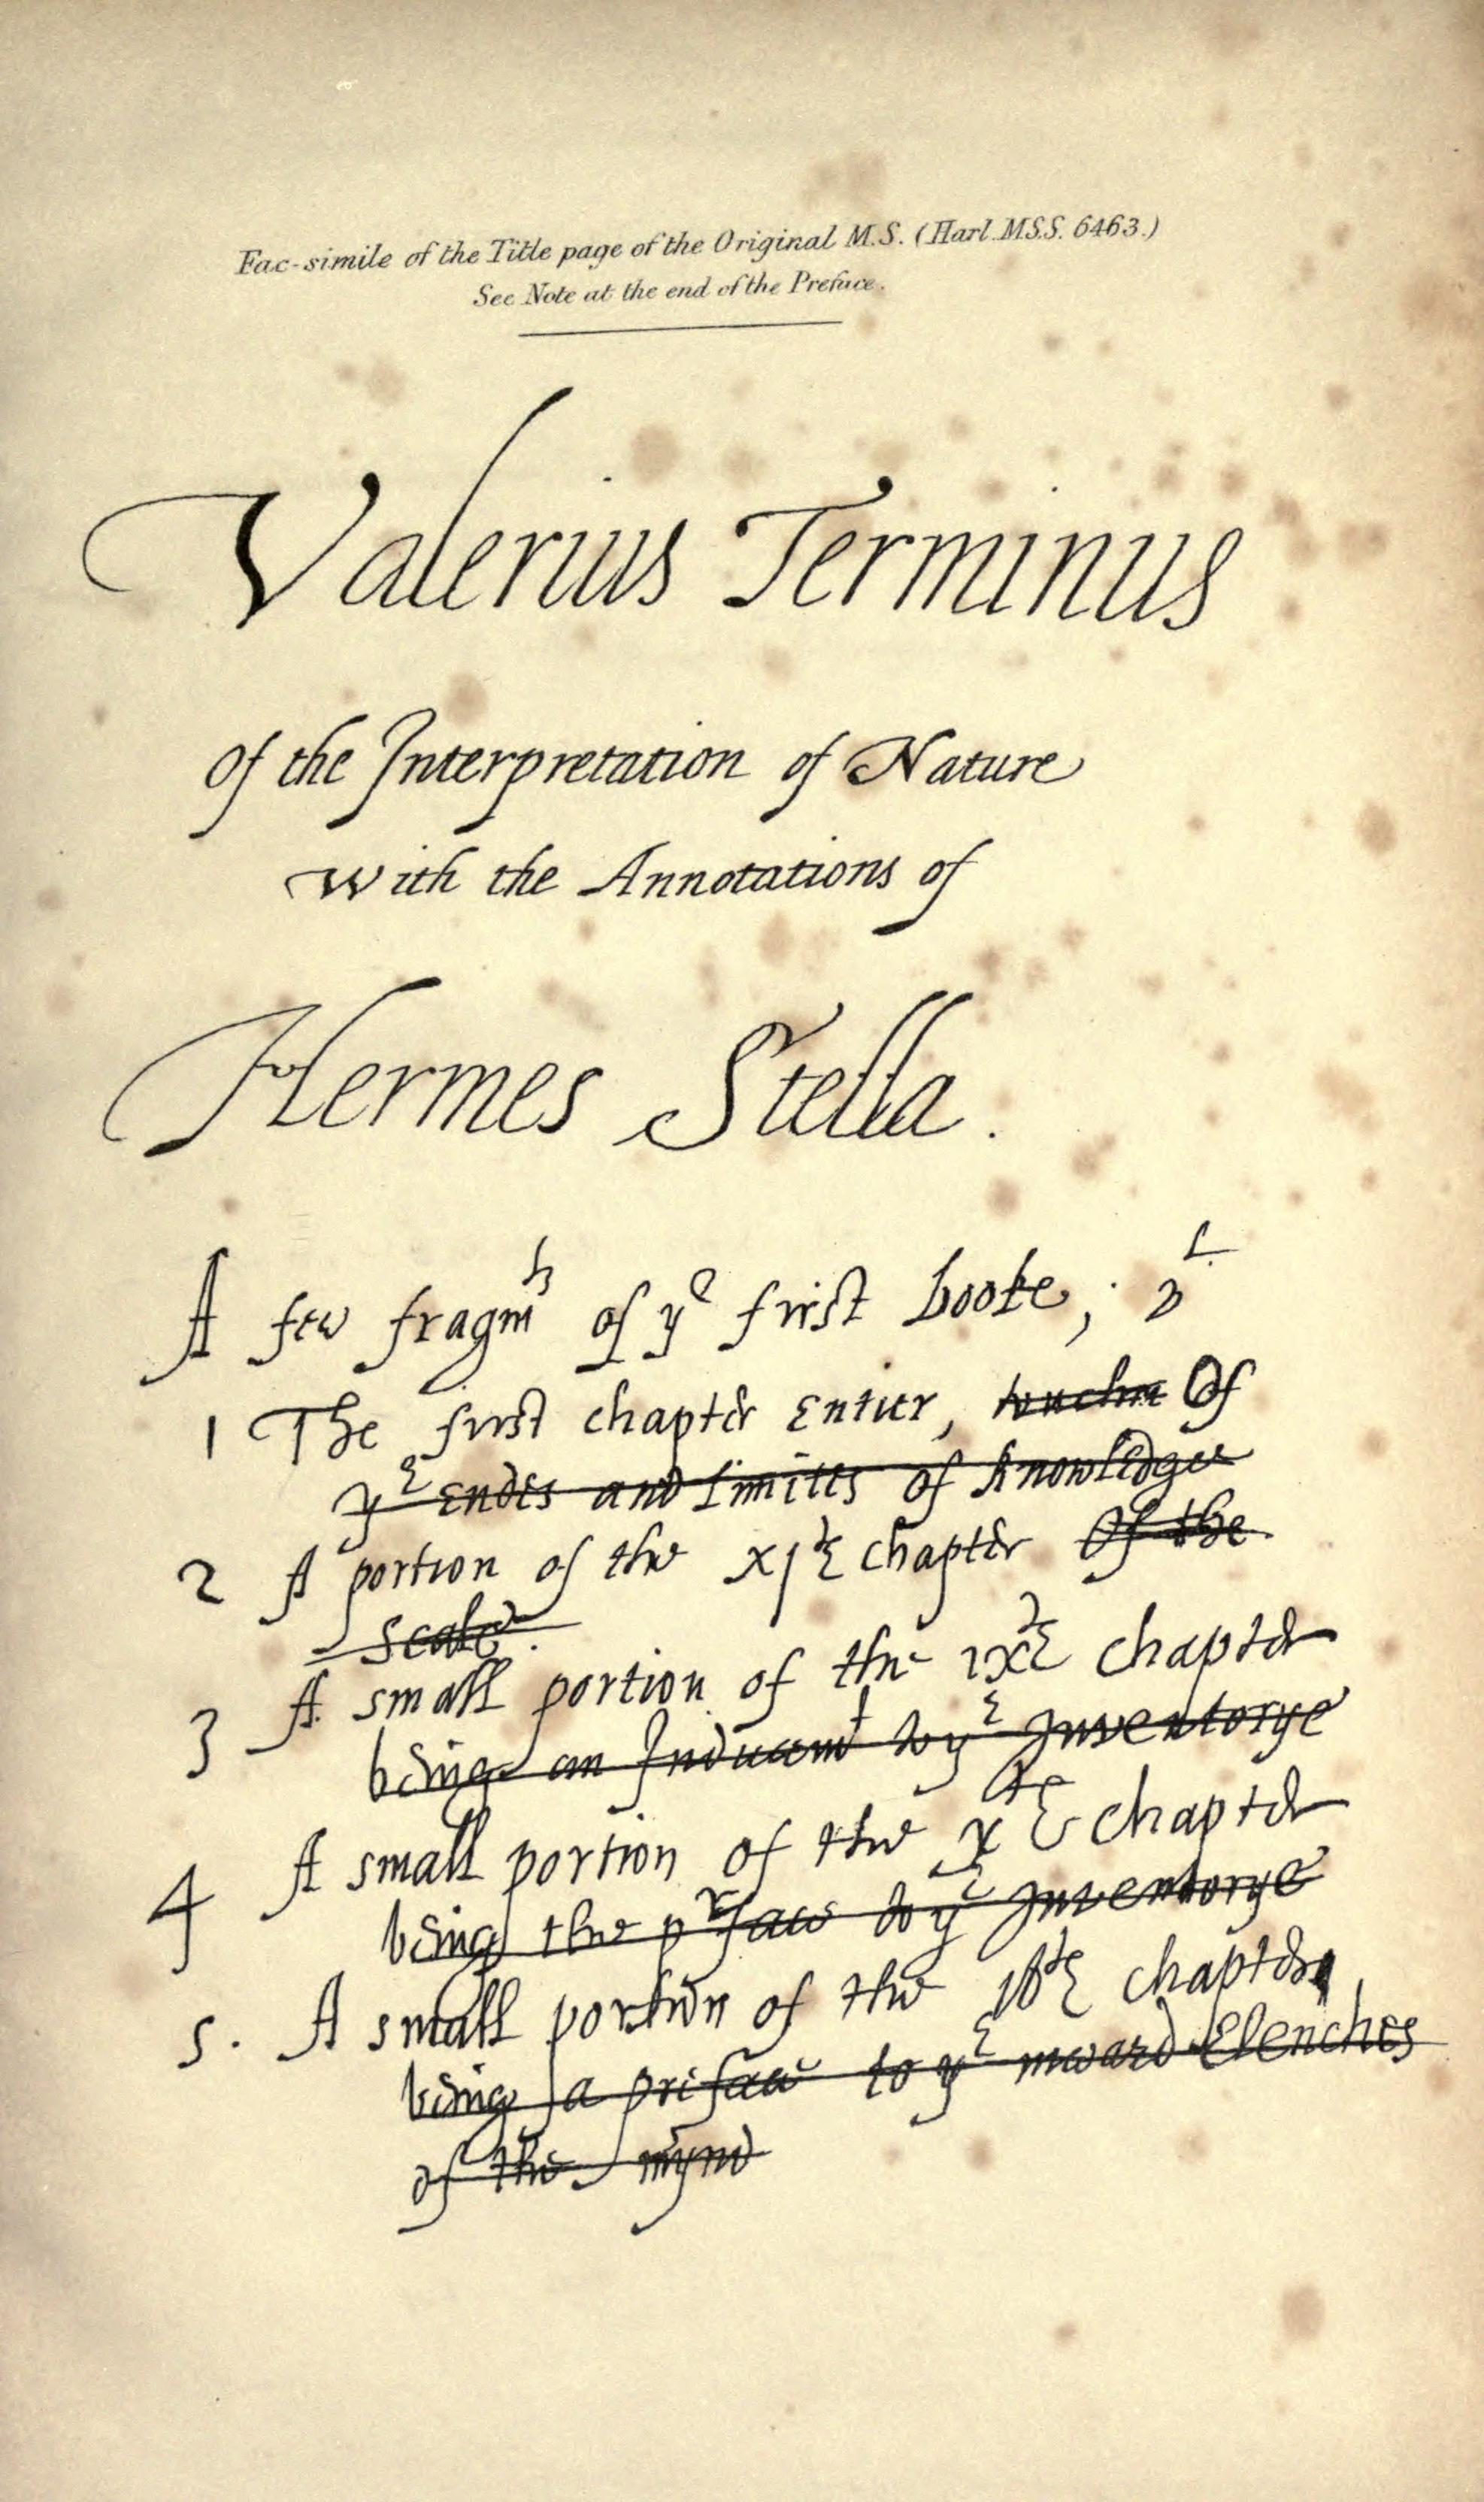 Fac-simile of the Title page of the Original M.S. (Harl. MSS. 6463.)
See Note at the end of the Preface.
Valerius Terminus
Of the Interpretation of Nature
With the Annotations of
Hermes Stella.
A few fragmts of ye first booke,
1 The first chapter entier, Of
ye endes and limites of knowledge
2 A portion of the xjth chapter Of the
scale.
3 A small portion of the ixth chapter
being an Inducemt to ye Inventorye
4 A small portion of the xth chapter
being the prface to ye Inventorye
5. A small portion of the 16th chapter
being a preface to ye inward Elenches
of the mynd